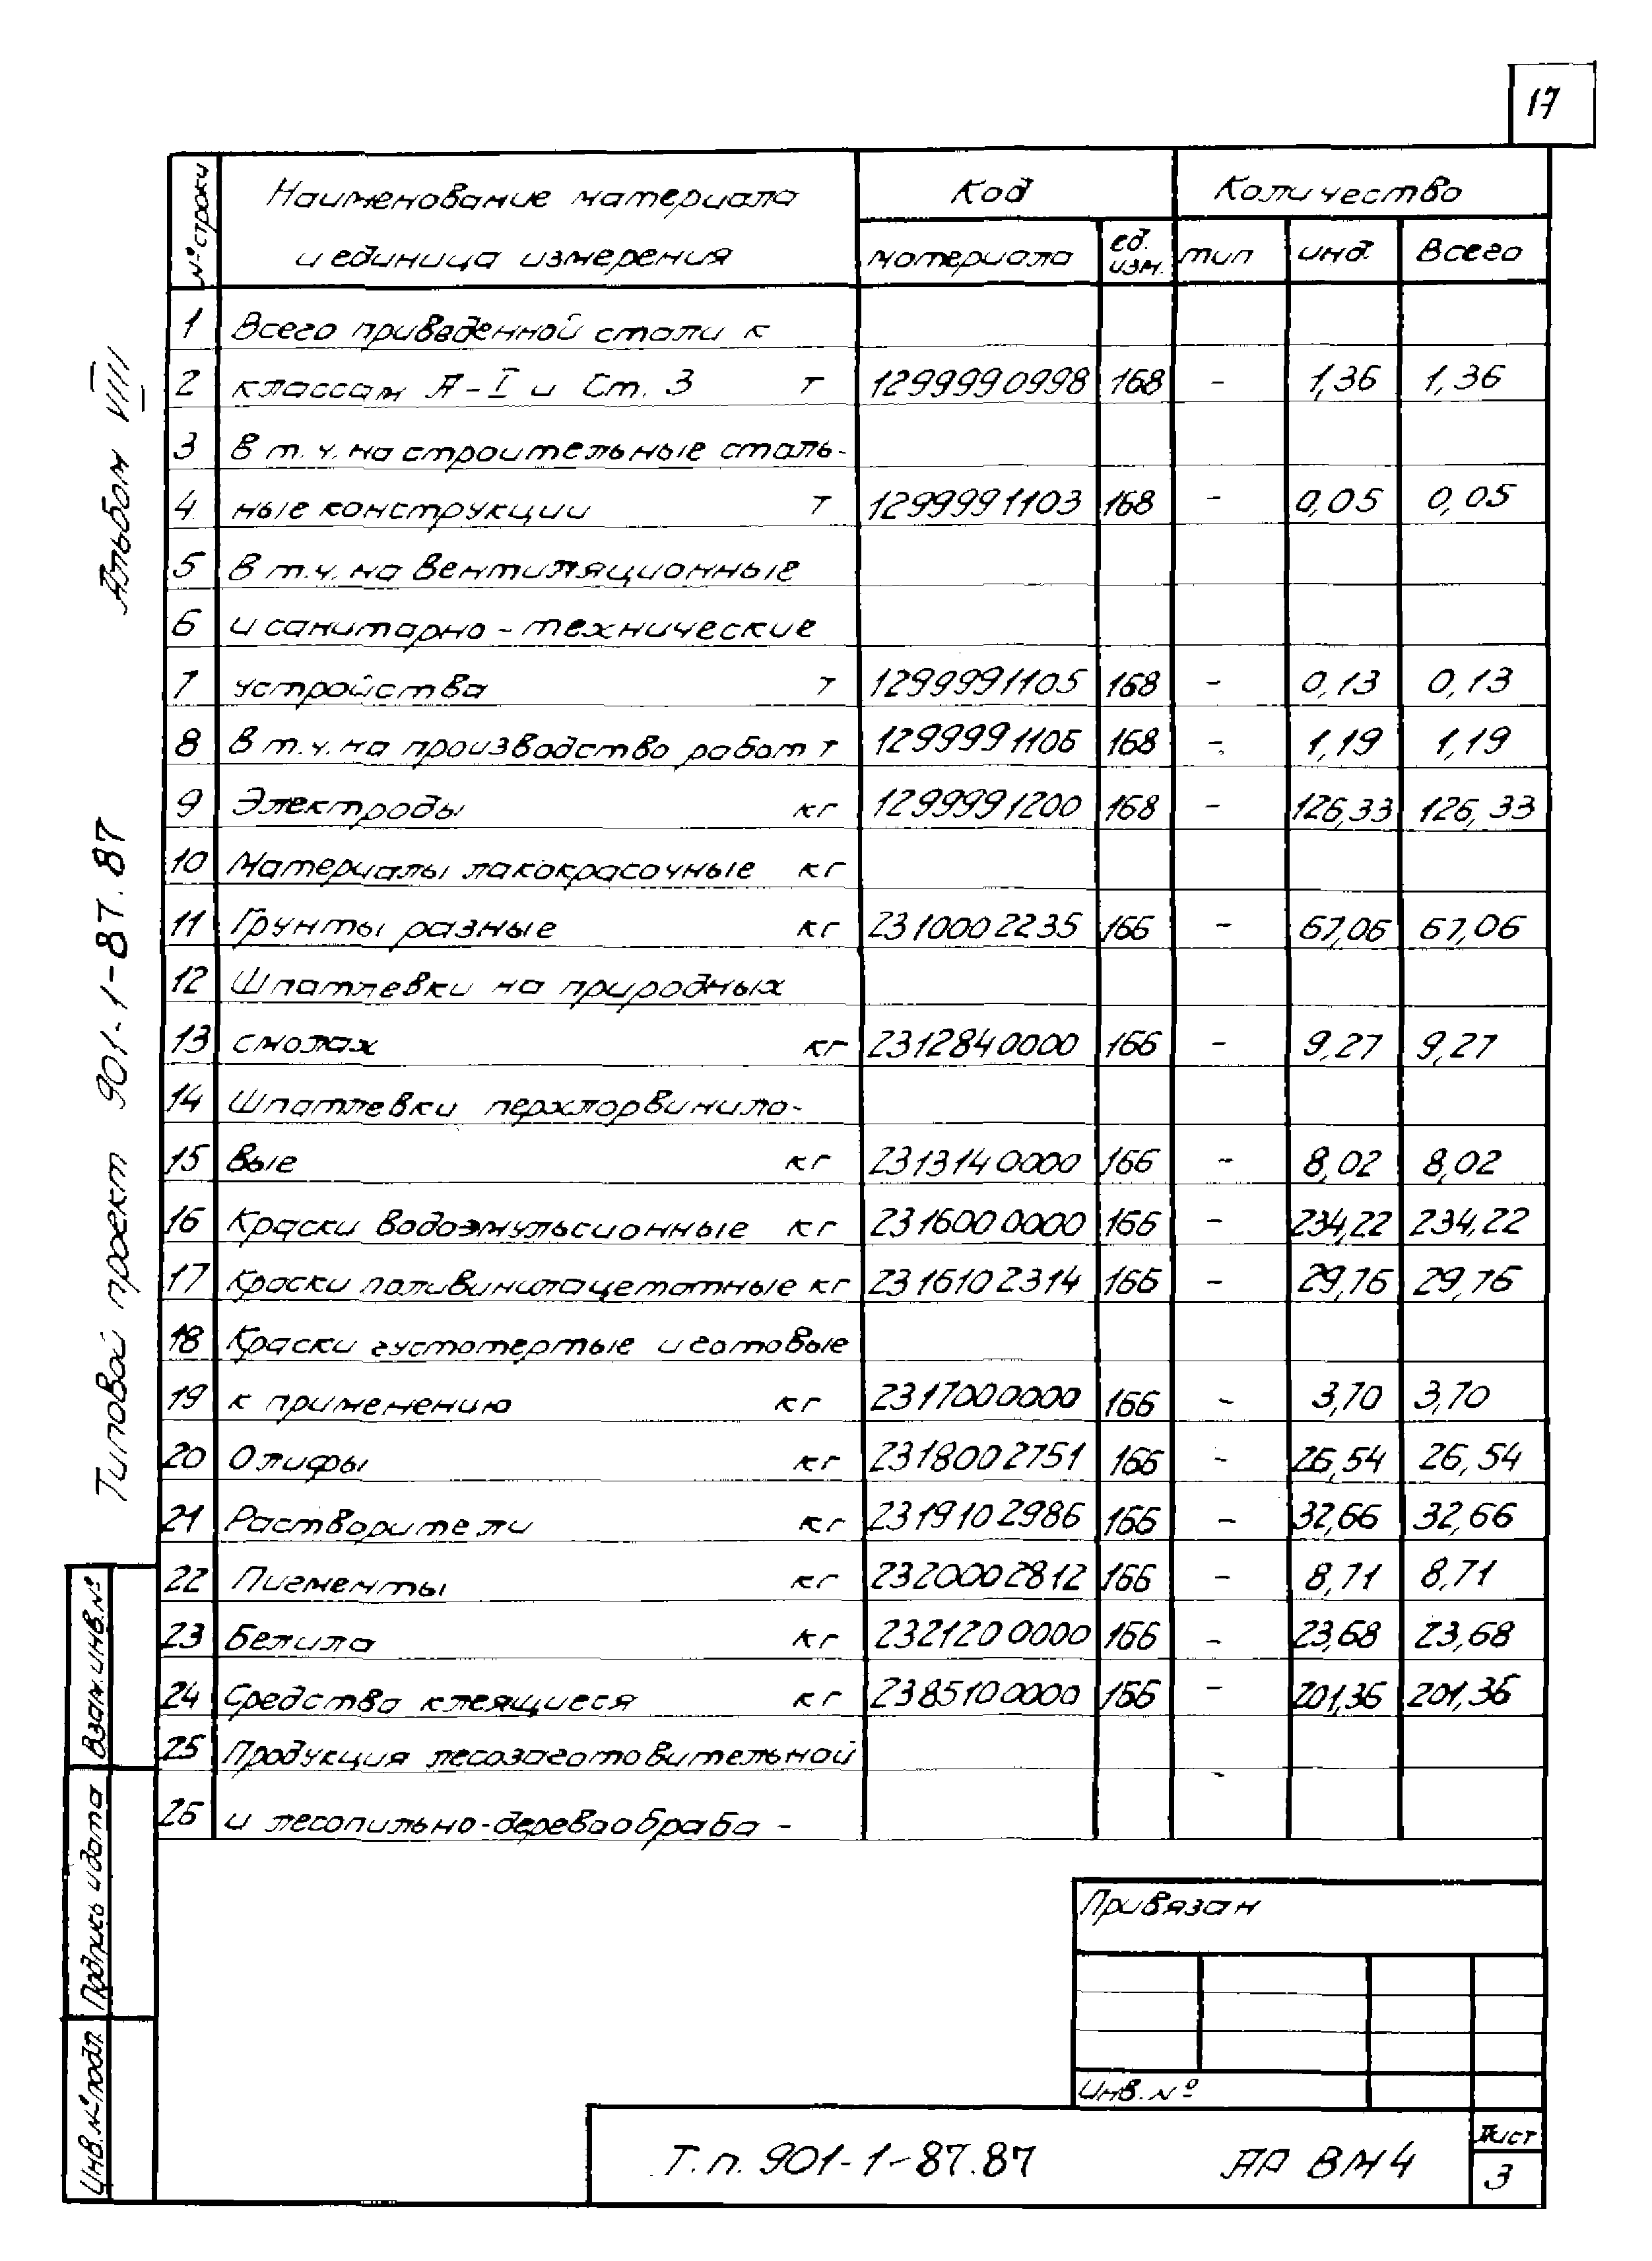 17
№ строки
Наименование материала
и единица измерения
Код
Количество
материала
ед. изм.
тип
инд.
Всего
1 Всего приведенной стали к
2 классам А-I и Ст. 3 т 1299990998 168 - 1,36 1,36
3 В т. ч. на строительные сталь-
4 ные конструкции т 1299991103 168 - 0,05 0,05
5 В т.ч. на вентиляционные
6 и санитарно-технические
7 устройства т 1299991105 168 - 0,13 0,13
8 В т.ч. на производство работ т 1299991106 168 - 1,19 1,19
9 Электроды кг 1299991200 168 - 126,33 126,33
10 Материалы лакокрасочные кг
11 Грунты разные кг 2310002235 166 - 67,06 67,06
12 Шпатлевки на природных
13 смолах кг 2312840000 166 - 9,27 9,27
14 Шпатлевки перхлорвинило-
15 вые кг 2313140000 166 - 8,02 8,02
16 Краски водоэмульсионные кг 2316000000 166 - 234,22 234,22
17 Краски поливинилацетатные кг 2316102314 166 - 29,76 29,76
18 Краски густотертые и готовые
19 к применению кг 2317000000 166 - 3,70 3,70
20 Олифы кг 2318002751 166 - 26,54 26,54
21 Растворители кг 2319102986 166 - 32,66 32,66
22 Пигменты кг 2320002812 166 - 8,71 8,71
23 Белила кг 2321200000 166 - 23,68 23,68
24 Средства клеящиеся кг 2385100000 166 - 201,36 201,36
25 Продукция лесозаготовительной
26 и лесопильно-деревообраба-
Альбом VIII
Типовой проект 901-1-87.87
Взам.инв.№
Подпись и дата
Инв.№ подл.
Привязан
Инв. №
Т.п. 901-1-87.87 АР ВМ4
Лист
3